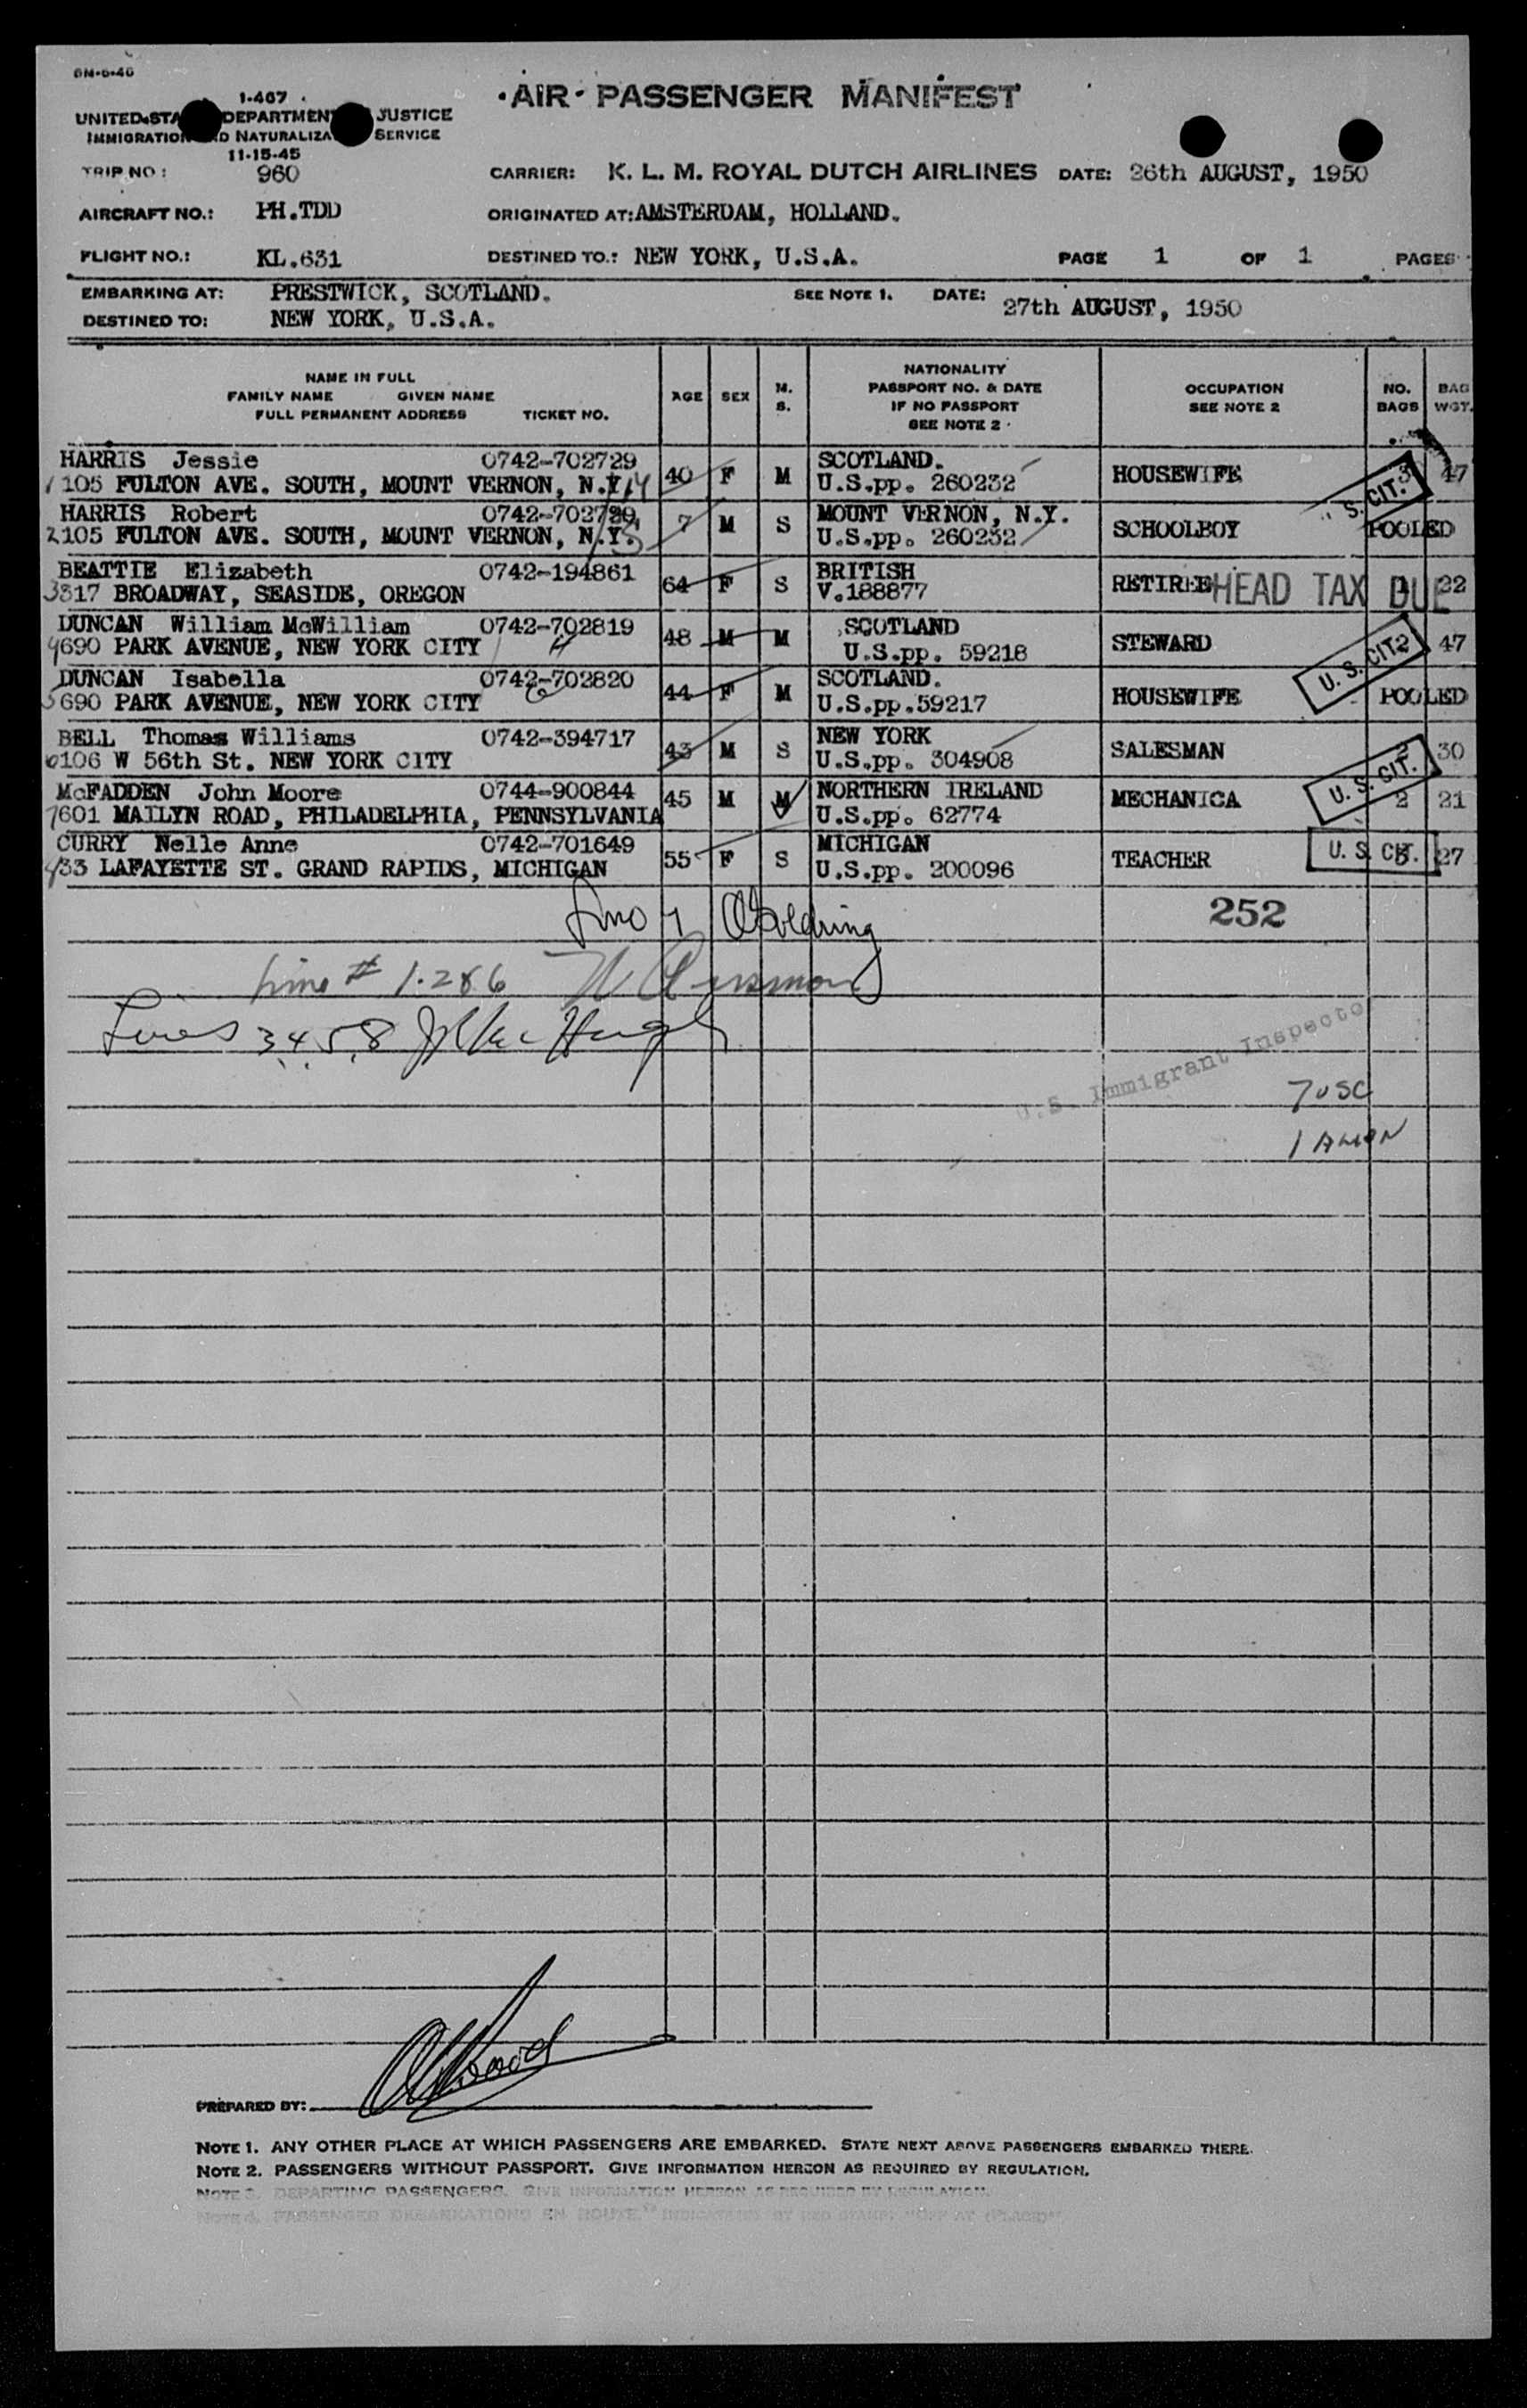 AIR PASSENGER MANIFEST
1-467
UNITED STA DEPARTMEN JUSTICE
IMMIGRATION D NATURALIZA SERVICE
11-15-45
TRIP NO: 960 CARRIER: K. L. M. ROYAL DUTCH AIRLINES DATE: 26th AUGUST, 1950
AIRCRAFT NO.: PH.TDD ORIGINATED AT: AMSTERDAM, HOLLAND.
FLIGHT NO.: KL.631 DESTINED TO.: NEW YORK, U.S.A. PAGE 1 OF 1 PAGES
EMBARKING AT: PRESTWICK, SCOTLAND. SEE NOTE 1. DATE: 27th AUGUST, 1950
DESTINED TO: NEW YORK, U.S.A.
NAME IN FULL
FAMILY NAME GIVEN NAME
FULL PERMANENT ADDRESS TICKET NO.
AGE
SEX
M.
S.
NATIONALITY
PASSPORT NO. & DATE
IF NO PASSPORT
SEE NOTE 2
OCCUPATION
SEE NOTE 2
NO.
BAGS
BAG
WGT.
HARRIS Jessie 0742-702729 40 F M SCOTLAND. HOUSEWIFE 3 47
1 105 FULTON AVE. SOUTH, MOUNT VERNON, N.Y. U.S.pp. 260232 U. S. CIT.
HARRIS Robert 7 M S MOUNT VERNON, N.Y. SCHOOLBOY POOLED
2 105 FULTON AVE. SOUTH, MOUNT VERNON, N.Y. U.S.pp. 260232
BEATTIE Elizabeth 0742-194861 64 F S BRITISH RETIRED 1 22
3 317 BROADWAY, SEASIDE, OREGON V.188877 HEAD TAX DUE
DUNCAN William McWilliam 0742-702819 48 M M SCOTLAND STEWARD 2 47
4 690 PARK AVENUE, NEW YORK CITY U.S.pp. 59218 U. S. CIT.
DUNCAN Isabella 0742-702820 44 F M SCOTLAND. HOUSEWIFE POOLED
5 690 PARK AVENUE, NEW YORK CITY U.S.pp.59217
BELL Thomas Williams 0742-394717 43 M S NEW YORK SALESMAN 2 30
6 106 W 56th St. NEW YORK CITY U.S.pp. 304908 U. S. CIT.
McFADDEN John Moore 0744-900844 45 M M NORTHERN IRELAND MECHANICA 2 21
7 601 MAILYN ROAD, PHILADELPHIA, PENNSYLVANIA U.S.pp. 62774
CURRY Nelle Anne 0742-701649 55 F S MICHIGAN TEACHER 27
33 LAFAYETTE ST. GRAND RAPIDS, MICHIGAN U.S.pp. 200096 U. S. CIT.
Line 7 252
Line # 1.2&6
Lines 3 4 5, 8
U.S. Immigrant Inspector
7 USC
1 ALIEN
PREPARED BY:
NOTE 1. ANY OTHER PLACE AT WHICH PASSENGERS ARE EMBARKED. STATE NEXT ABOVE PASSENGERS EMBARKED THERE.
NOTE 2. PASSENGERS WITHOUT PASSPORT. GIVE INFORMATION HEREON AS REQUIRED BY REGULATION.
NOTE 3. DEPARTING PASSENGERS. GIVE INFORMATION HEREON AS REQUIRED BY REGULATION.